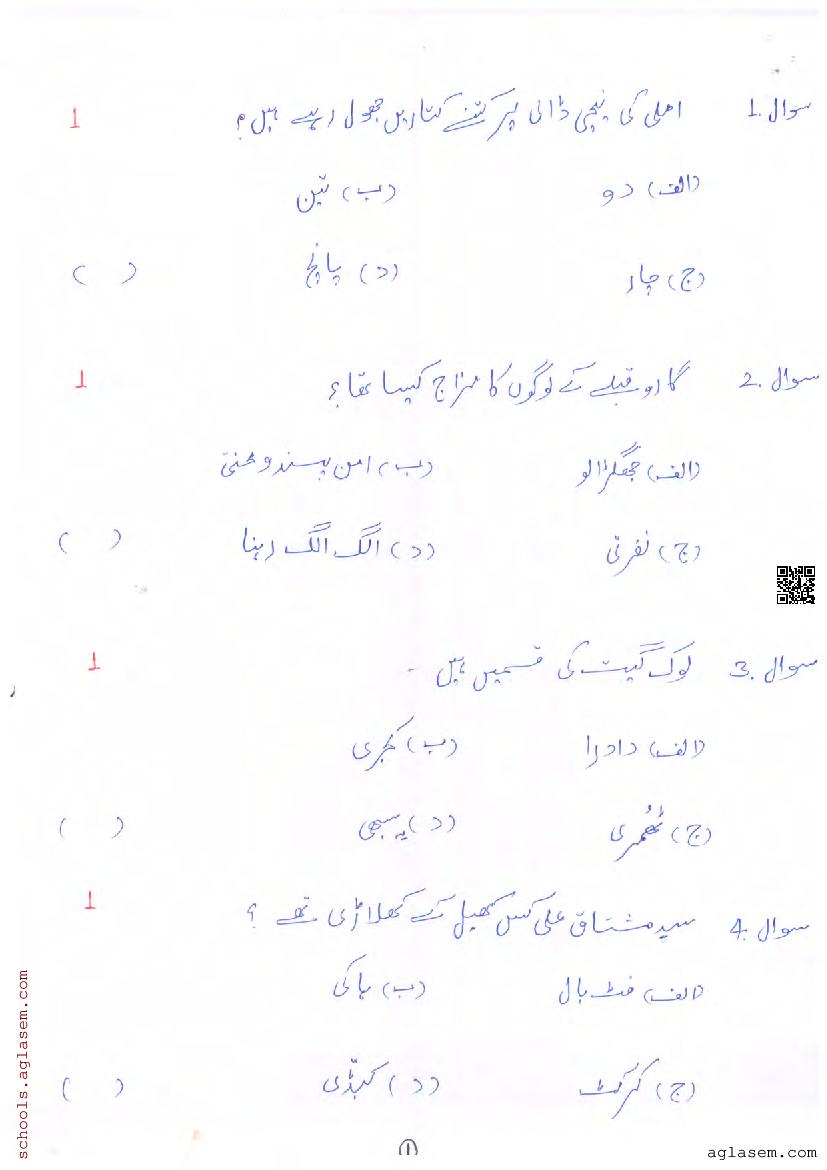 سوال .1 املی کی نیچی ڈالی پر کتنے کتاریں جھول رہے ہیں؟ 1
(الف) دو (ب) تین
(ج) چار (د) پانچ ( )
سوال .2 گارو قبلے کے لوگوں کا مزاج کیسا تھا؟ 1
(الف) جھگڑالو (ب) امن پسند و محنتی
(ج) نفرتی (د) الگ الگ رہنا ( )
سوال .3 لوک گیت کی قسمیں ہیں - 1
(الف) دادرا (ب) کجری
(ج) ٹھُمری (د) یہ سبھی ( )
سوال .4 سید مشتاق علی کس کھیل کے کھلاڑی تھے ؟ 1
(الف) فٹ بال (ب) ہاکی
(ج) کرکٹ (د) کبڈّی ( )
1
schools.aglasem.com
aglasem.com